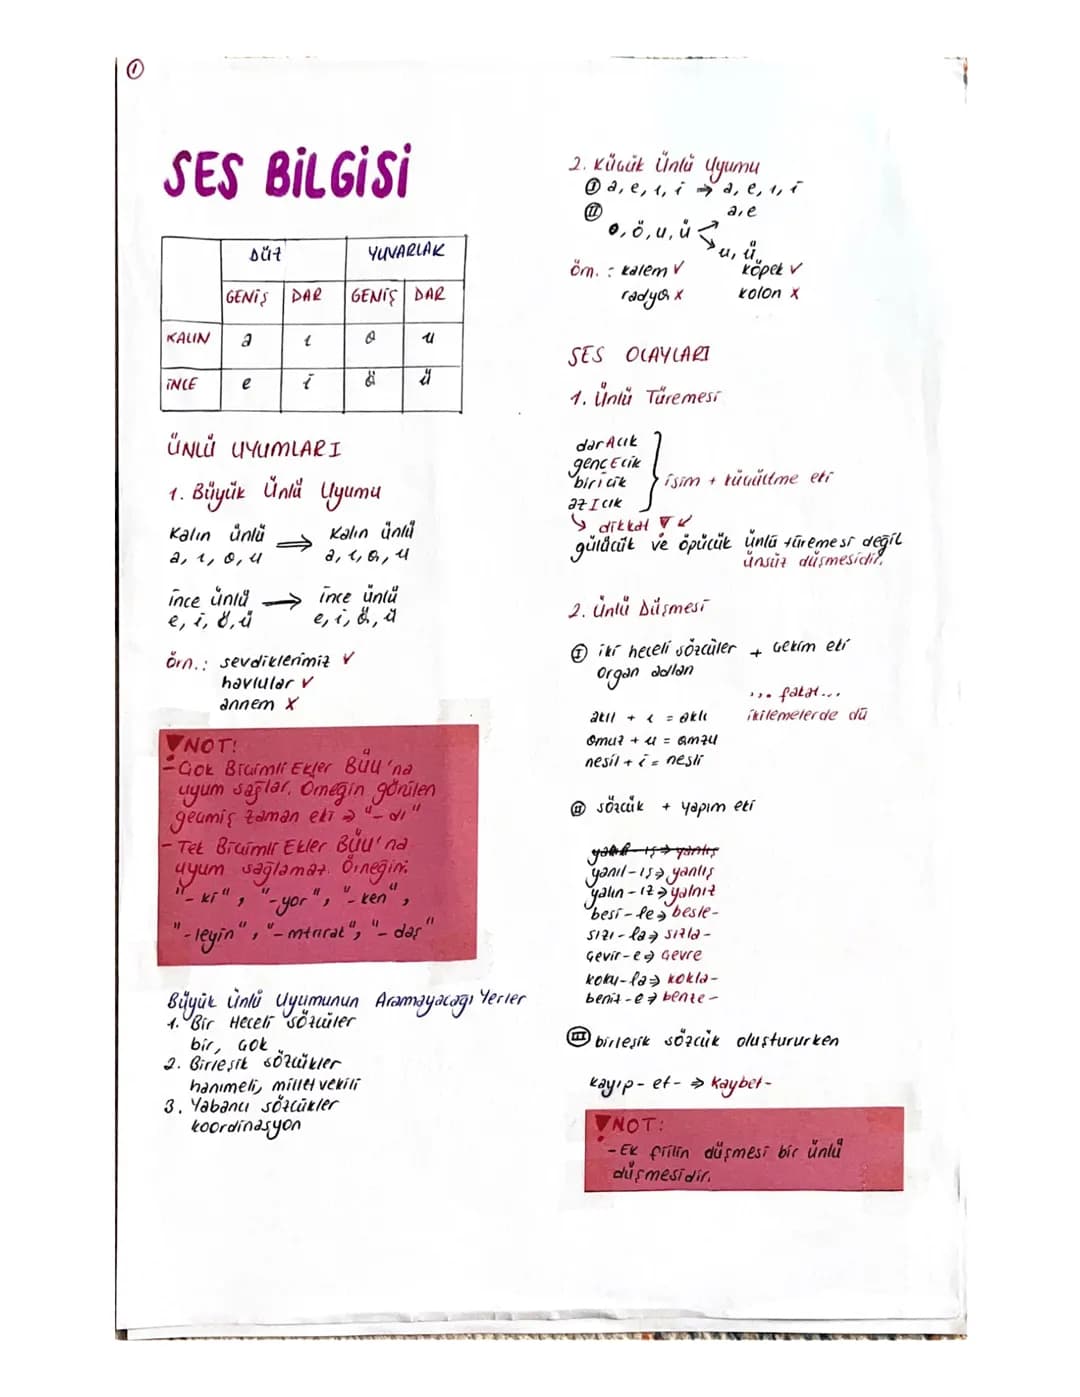 1
SES BİLGİSİ
DÜZ YUVARLAK
GENİŞ DAR GENİŞ DAR
KALIN a ı o u
İNCE e i ö ü
ÜNLÜ UYUMLARI
1. Büyük Ünlü Uyumu
Kalın ünlü ⟹ Kalın ünlü
a, ı, o, u a, ı, o, u
ince ünlü ⟶ ince ünlü
e, i, ö, ü e, i, ö, ü
örn.: sevdiklerimiz ✓
havlular ✓
annem X
NOT!
-Çok Biçimli Ekler BÜU'na
uyum sağlar. Örneğin görülen
geçmiş zaman eki ⇒ "-dı"
- Tek Biçimli Ekler BÜU'na
uyum sağlamaz. Örneğin:
"-ki", "-yor", "-ken",
"-leyin", "-mtırak", "-daş"
Büyük Ünlü Uyumunun Aramayacağı Yerler
1. Bir Heceli sözcüler
bir, çok
2. Birleşik sözcükler
hanımeli, milletvekili
3. Yabancı sözcükler
koordinasyon
2. Küçük Ünlü Uyumu
I a, e, ı, i ⇒ a, e, ı, i
II o, ö, u, ü a, e
u, ü
örn.: kalem ✓ köpek ✓
radyo X kolon X
SES OLAYLARI
1. Ünlü Türemesi
darAcık
gencEcik
biricik
azIcık
isim + küçültme eki
dikkat
gülücük ve öpücük ünlü türemesi değil
ünsüz düşmesidir.
2. Ünlü Düşmesi
I iki heceli sözcüler + çekim eki
organ adları
... fakat...
akıl + ı = aklı ikilemelerde dü
omuz + u = omzu
nesil + i = nesli
II sözcük + yapım eki
yanıl-ış⇒yanlış
yanıl-ış⇒yanlış
yalın-ız⇒yalnız
besi-le⇒besle-
sızı-la⇒sızla-
çevir-e⇒çevre
koku-la⇒kokla-
beniz-e⇒benze-
III birleşik sözcük oluştururken
kayıp-et- ⇒ kaybet-
NOT:
-Ek fiilin düşmesi bir ünlü
düşmesidir.